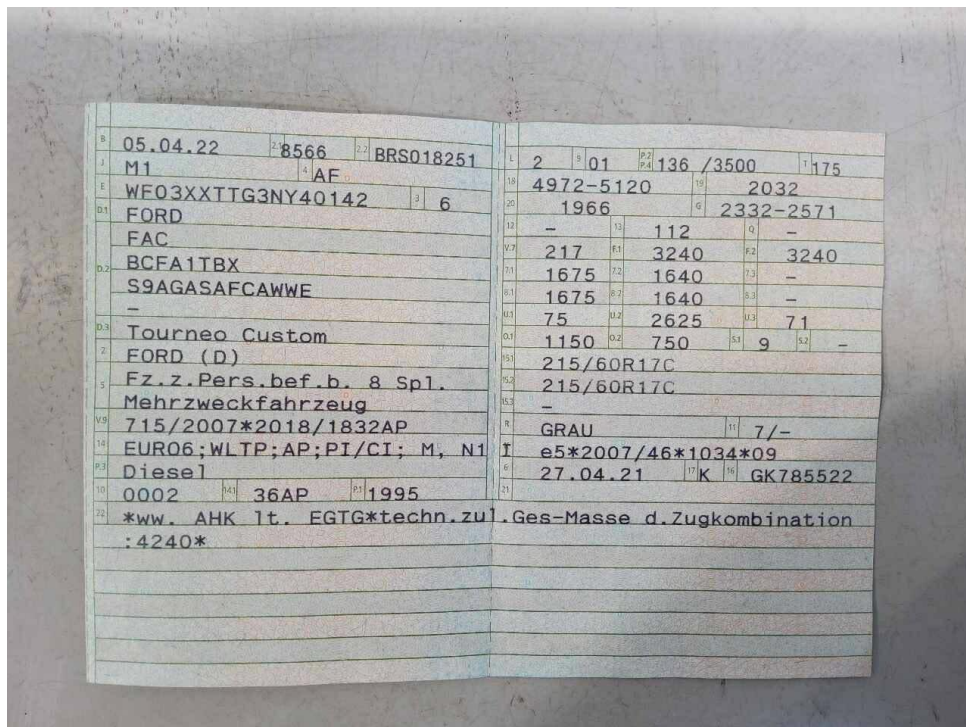 B 05.04.22 2.1 8566 2.2 BRS018251
J M1 4 AF
E WF03XXTTG3NY40142 3 6
D.1 FORD
FAC
D.2 BCFA1TBX
S9AGASAFCAWWE
–
D.3 Tourneo Custom
2 FORD (D)
5 Fz.z.Pers.bef.b. 8 Spl.
Mehrzweckfahrzeug
V.9 715/2007*2018/1832AP
14 EURO6;WLTP;AP;PI/CI; M, N1 I
P.3 Diesel
10 0002 14.1 36AP P.1 1995
L 2 9 01 P.2 P.4 136 /3500 T 175
18 4972-5120 19 2032
20 1966 G 2332-2571
12 – 13 112 Q –
V.7 217 F.1 3240 F.2 3240
7.1 1675 7.2 1640 7.3 –
8.1 1675 8.2 1640 8.3 –
U.1 75 U.2 2625 U.3 71
O.1 1150 O.2 750 S.1 9 S.2 –
15.1 215/60R17C
15.2 215/60R17C
15.3 –
R GRAU 11 7/–
e5*2007/46*1034*09
6 27.04.21 17 K 16 GK785522
21
22 *ww. AHK lt. EGTG*techn.zul.Ges-Masse d.Zugkombination
:4240*